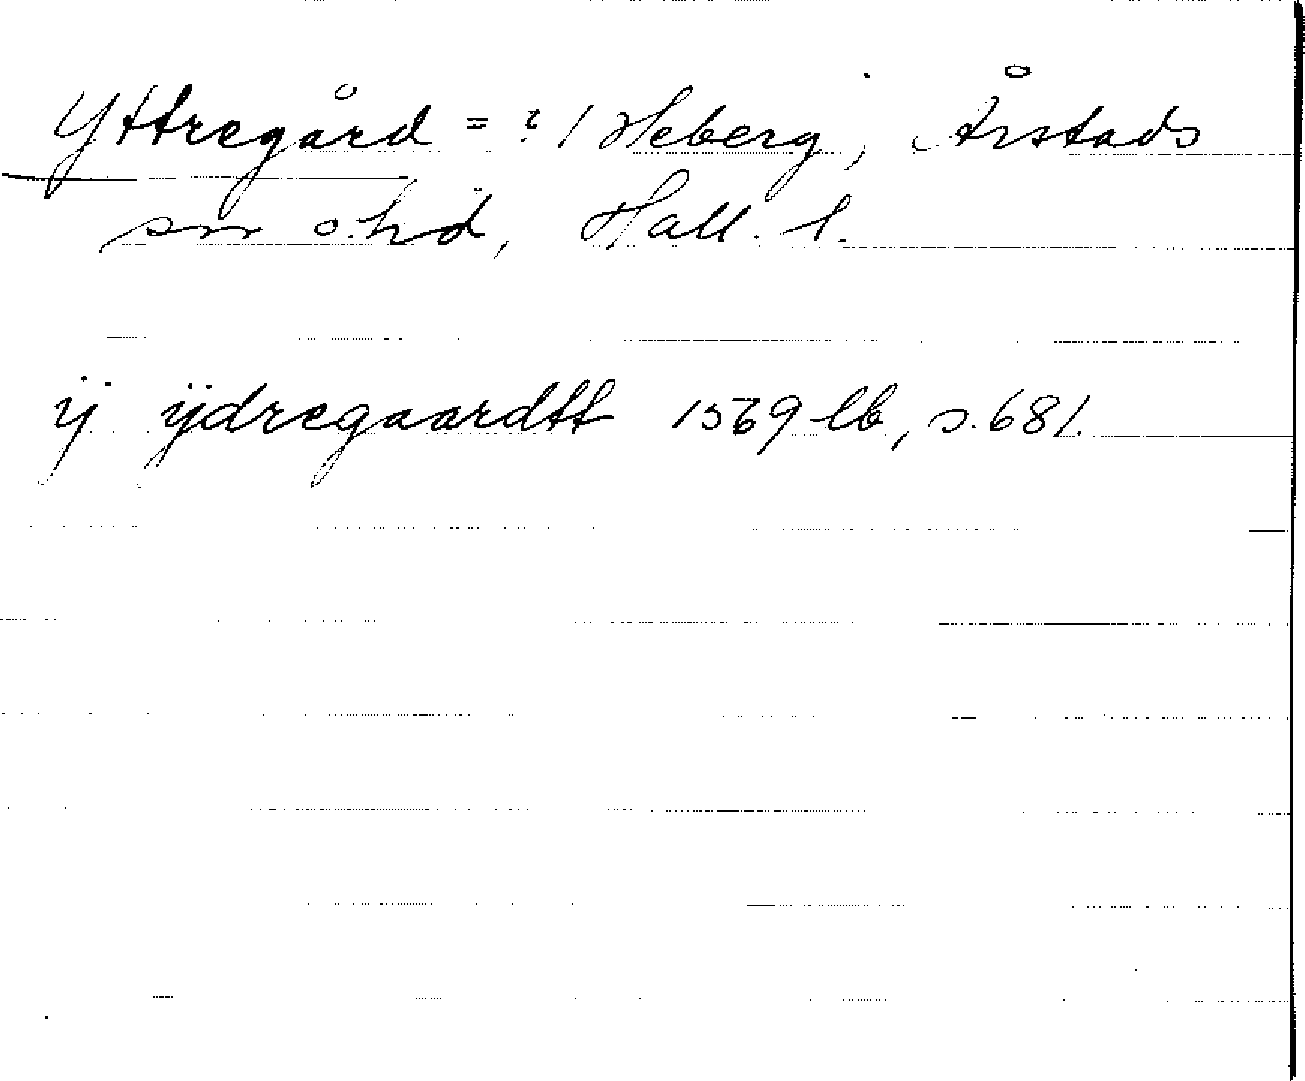 Yttregård = ? / Heberg, Årstads
sn o. hd, Hall. l.
ÿ ÿdregaardtt 1569 lb, s. 681.